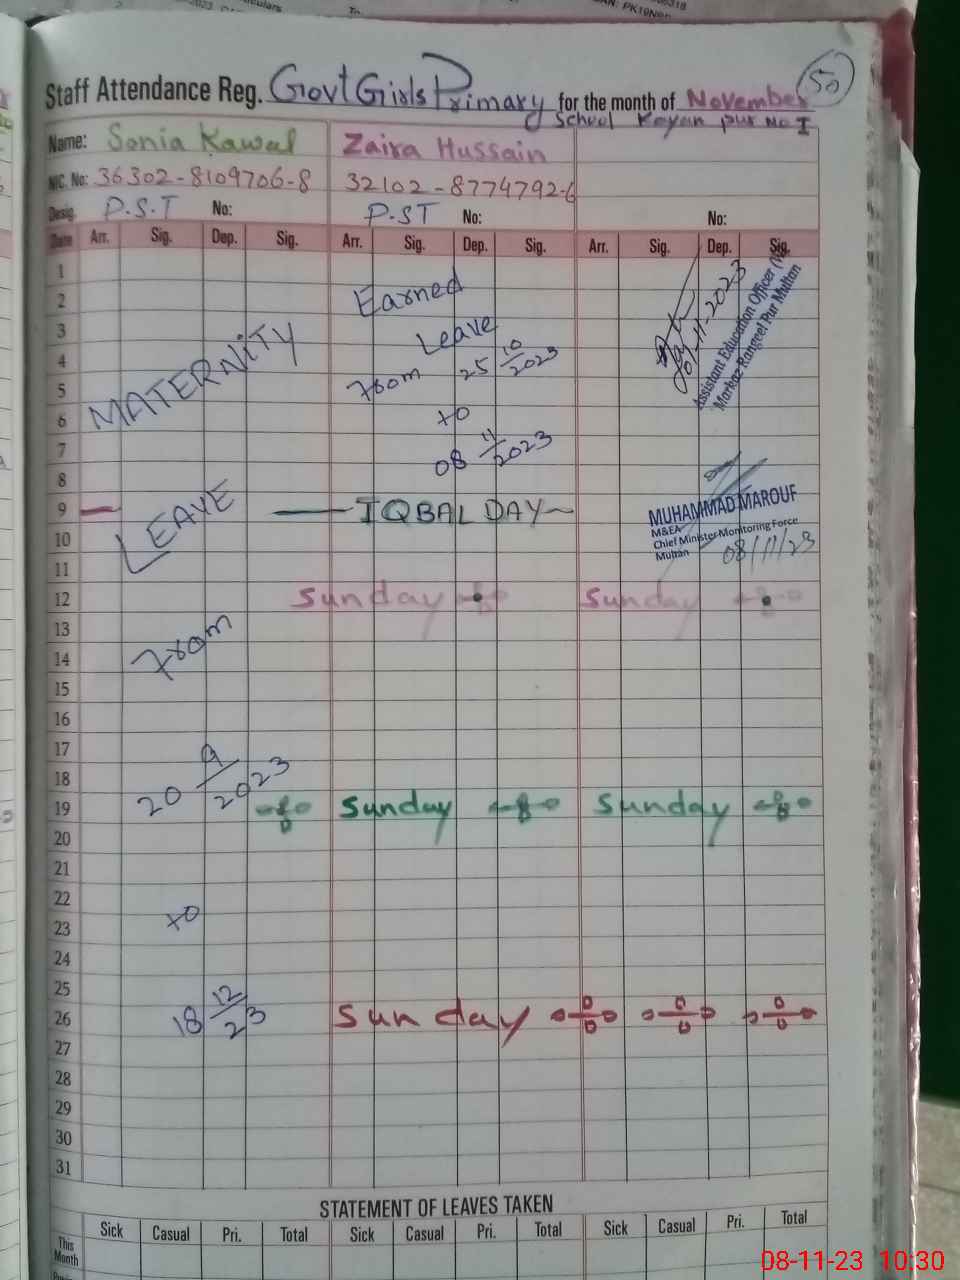 50
Staff Attendance Reg. Govt Girls Primary for the month of November
School Kayan pur No I
Name: Sonia Kawal Zaira Hussain
NIC. No: 36302-8109706-8 32102-8774792-6
Desig. P.S.T No: P.ST No: No:
Date Arr. Sig. Dep. Sig. Arr. Sig. Dep. Sig. Arr. Sig. Dep. Sig.
1
2 Earned
3 Leave
4 25 10/2023
5 From
6 to
7 08 11/2023
8
9 — IQBAL DAY
10
11
12 Sunday Sunday
13
14
15
16
17
18
19 Sunday Sunday
20
21
22
23
24
25
26 Sunday
27
28
29
30
31
MATERNITY
LEAVE
From
20 9/2023
to
18 12/23
01-11-2023
Assistant Education Officer
Markaz Rangeel Pur Multan
MUHAMMAD MAROUF
M&EA
Chief Minister Monitoring Force
Multan
08/11/23
STATEMENT OF LEAVES TAKEN
Sick Casual Pri. Total Sick Casual Pri. Total Sick Casual Pri. Total
This
Month
08-11-23 10:30